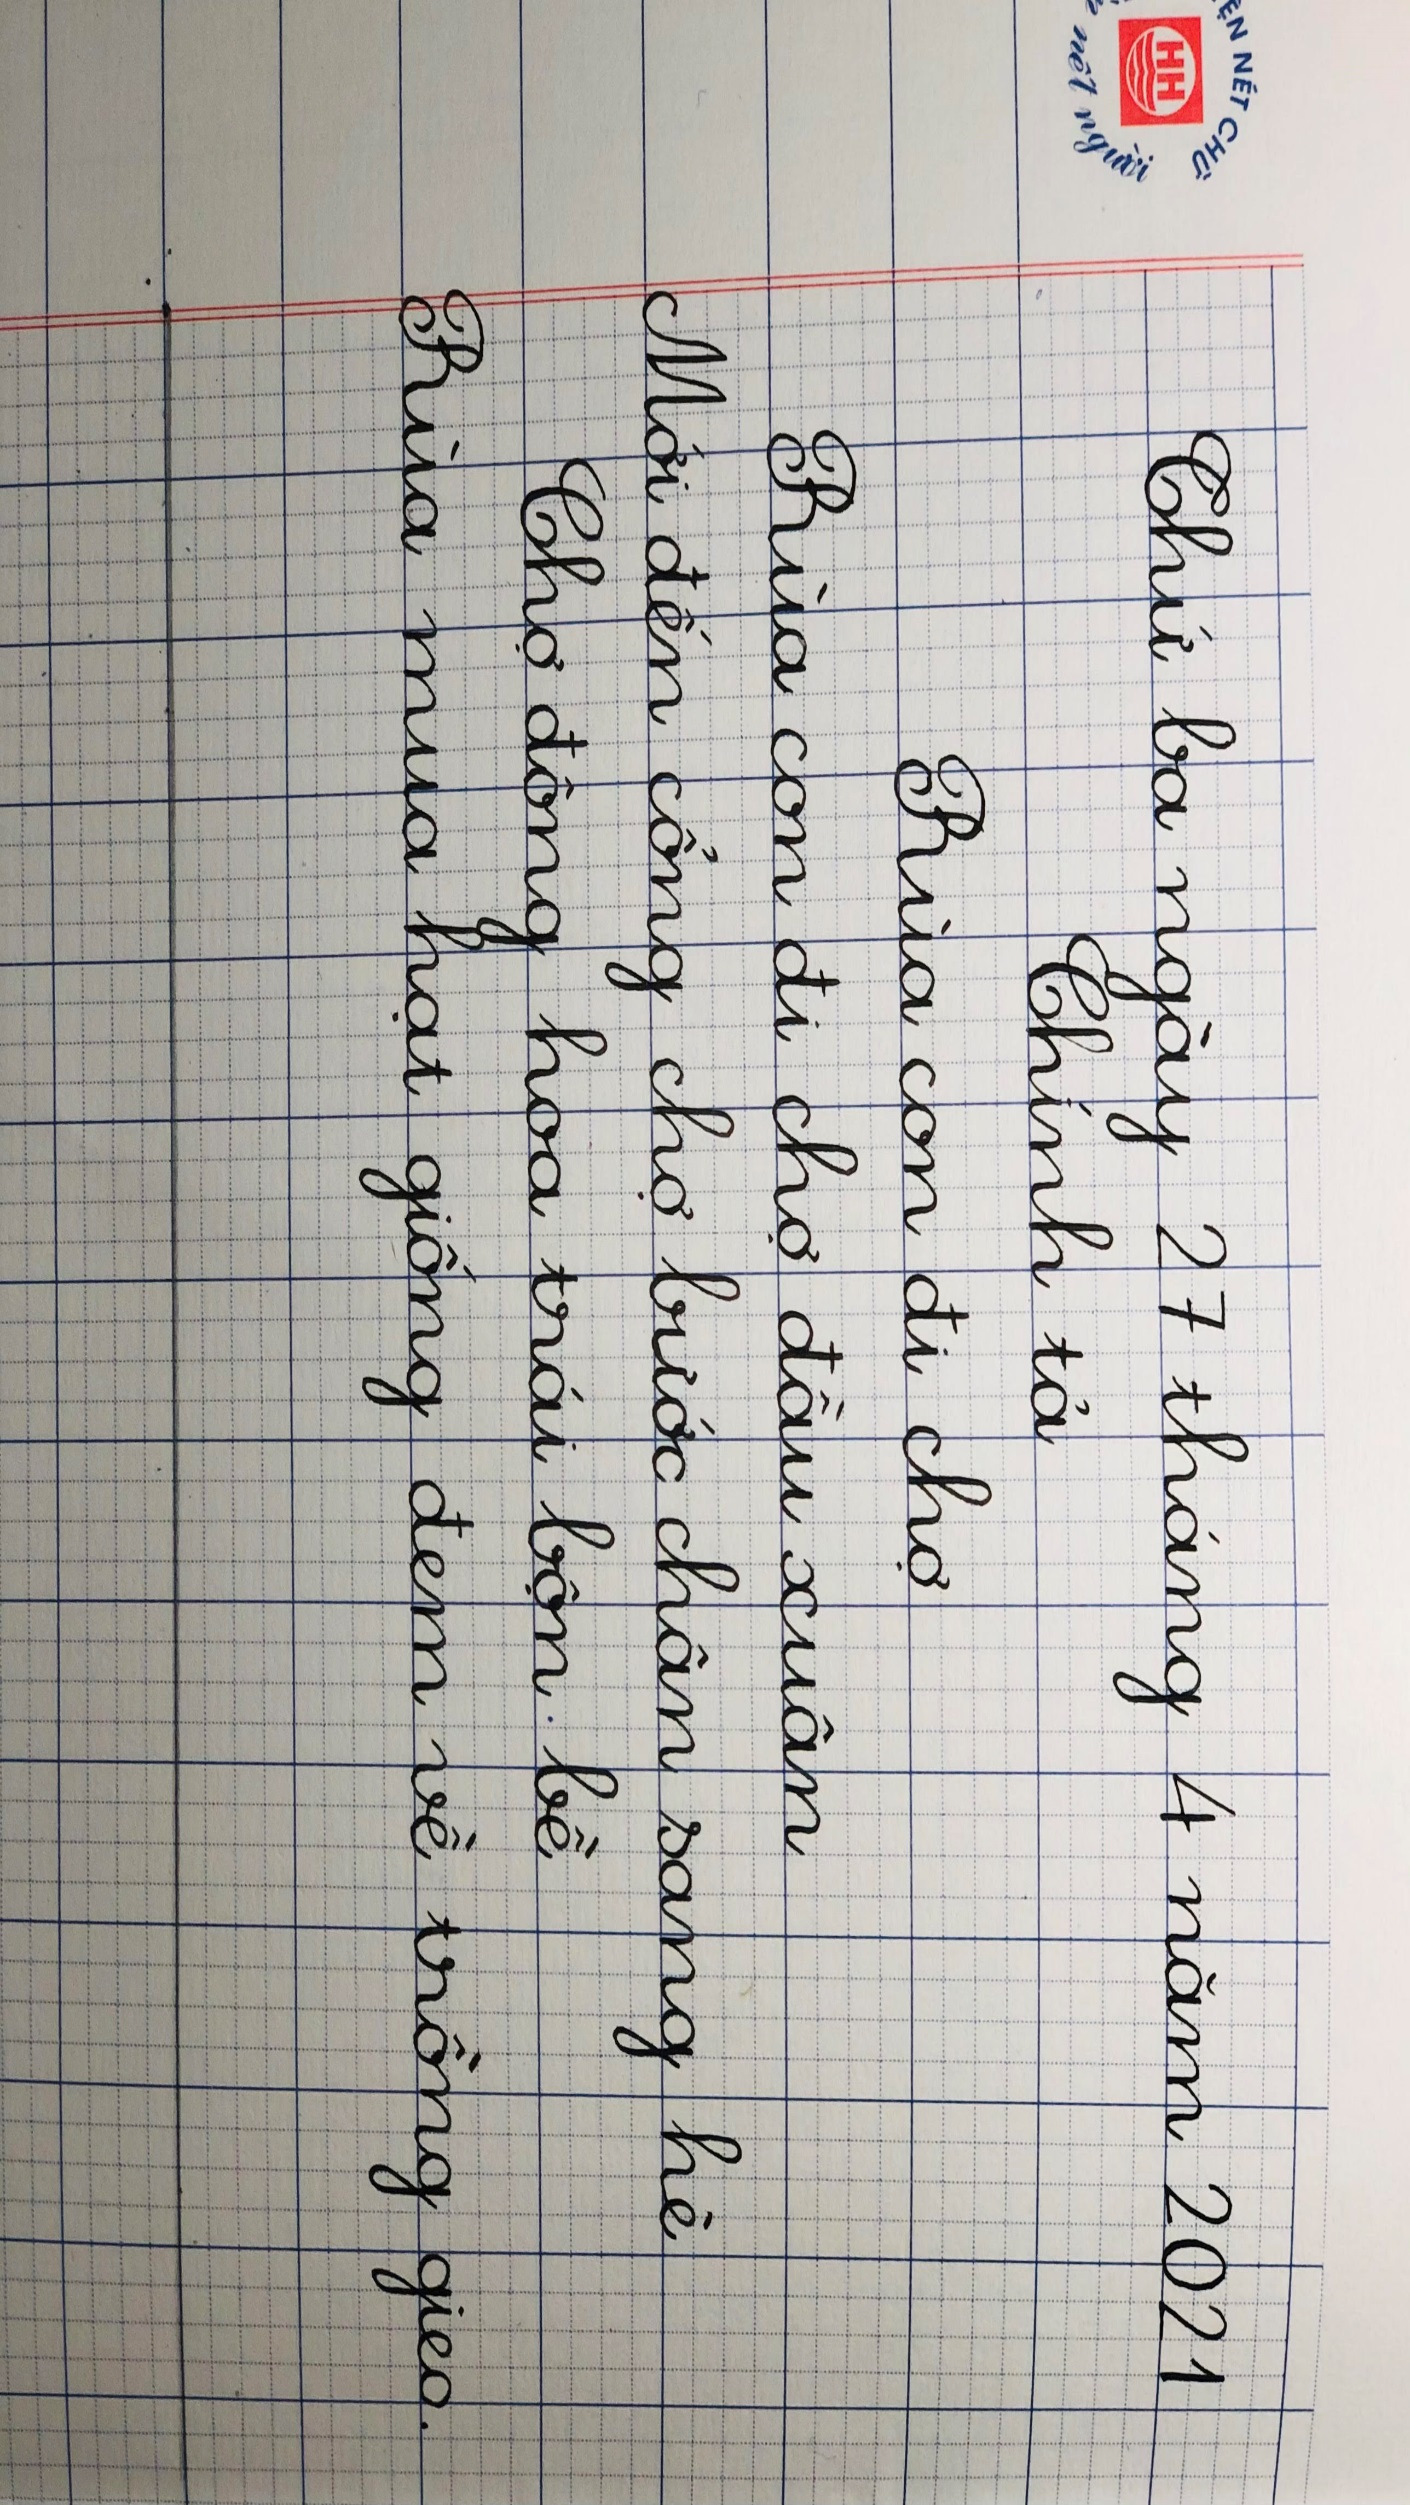 ỆN NÉT CHỮ
nết người
HH
Thứ ba ngày 27 tháng 4 năm 2021
Chính tả
Rùa con đi chợ
Rùa con đi chợ đầu xuân
Mới đến cổng chợ bước chân sang hè
Chợ đông hoa trái bộn bề
Rùa mua hạt giống đem về trồng gieo.